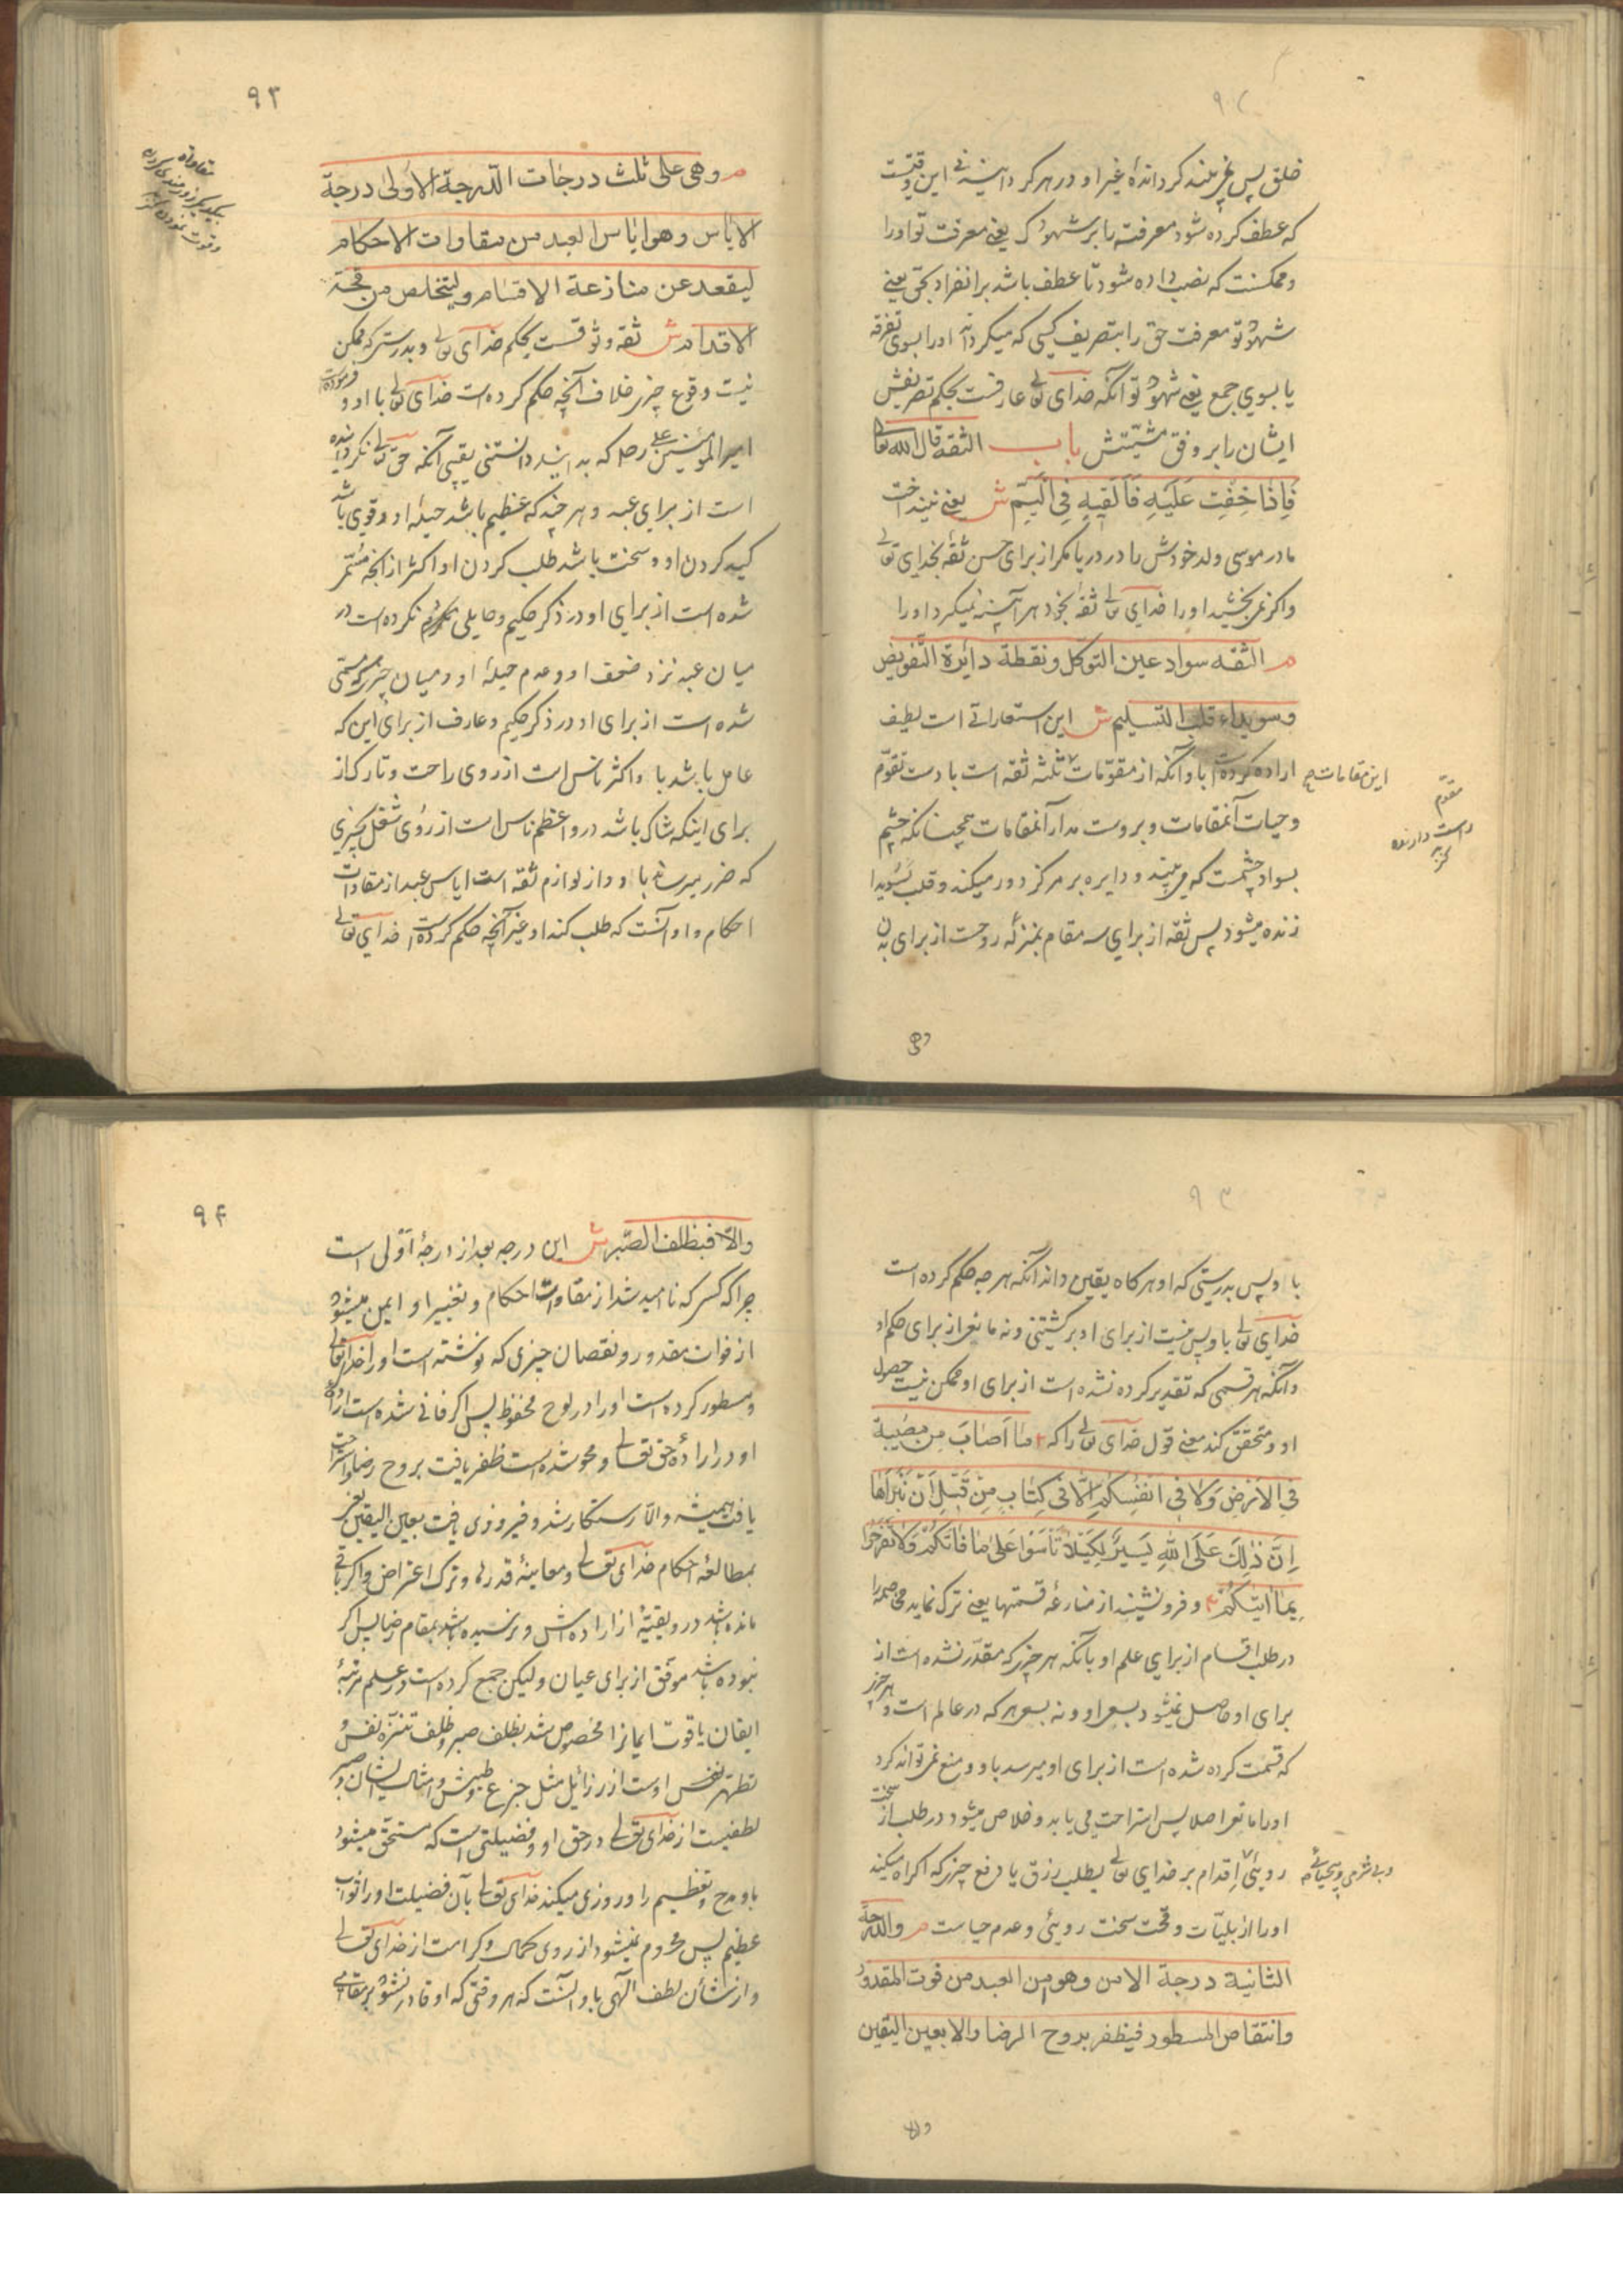 خلق پس غیر بلند کرداندهٔ غیر او در هر کرد این وقتیست
که عطف کرده شود معرفته با بر شهودک یعنی معرفت تو او را
و ممکنست که نصب داده شود تا عطف باشد بر انفراد بحق یعنی
شهود تو معرفت حق را بتصریف کسی که میکرداند او را بسوی تفرقه
یا بسوی جمع یعنی شهود تو آنکه خدای تعالی عارفست بحکم تصریفش
ایشان را بر وفق مشیتش باب الثقه قال الله تعالی
فَاِذَا خِفْتِ عَلَیْهِ فَاَلْقِیهِ فِی الْیَمِّ ش یعنی نینداخت
مادر موسی ولد خودش را در دریا مگر از برای حسن ثقه بخدای تعالی
و اکر نمی بخشید او را خدای تعالی ثقه بخود هر آینه نمیکرد او را
م الثقه سواد عین التوکل و نقطة دائرة التفویض
و سویداء قلب التسلیم ش این استعاراتی است لطیف
اراده کرده است با و آنکه از مقومات ثلثه ثقه است با دست تقوم
این مقامات
مقوم
راست دارنده
و حیات آنمقامات و بروست مدار آنمقامات همچنانکه چشم
بسواد چشمست که می بیند و دایره بر مرکز دور میکند و قلب بسویدا
زنده میشود پس ثقه از برای سه مقام بمنزلهٔ روحست از برای بدن
وهی
۹۳
م وهی علی ثلث درجات الدرجة الاولی درجة
الایاس وهو ایاس العبد من مقاوات الاحکام
لیقعد عن منازعة الاقسام ولیتخلص من قحة
الاقدام ش ثقه وثوقست بحکم خدای تعالی و بدرستی که ممکن
نیست وقوع چیزی خلاف آنچه حکم کرده است خدای تعالی با او و فرموده
امیر المؤمنین علی رض که بدانید دانستنی یقینی آنکه حق تعالی نکردانیده
است از برای عبد و هر چند که عظیم باشد حیلهٔ او و قوی باشد
کید کردن او و سخت باشد طلب کردن او اکثر از آنچه مسمّی
شده است از برای او در ذکر حکیم و حایلی نکرده است در
میان عبد نزد ضعف او و عدم حیلهٔ او و میان چیزی که مسمی
شده است از برای او در ذکر حکیم و عارف از برای این که
عامل باشد با و اکثر ناس است از روی راحت و تارک از
برای اینکه شاک باشد درو اعظم ناس است از روی شغل بچیزی
که ضرر میرساند با و و از لوازم ثقه است ایاس عبد از مقاوات
احکام و او آنست که طلب کند او غیر آنچه حکم کرده است خدای تعالی
با او پس بدرستی که او هر کاه یقین داند آنکه هر چه حکم کرده است
خدای تعالی با و پس نیست از برای او بر کشتنی و نه مانعی از برای حکم او
و آنکه هر قسمی که تقدیر کرده نشده است از برای او ممکن نیست حصول
او و متحقق کند معنی قول خدای تعالی را که مَا اَصَابَ مِنْ مُصِیبَةٍ
فِی الْاَرْضِ وَلَا فِی اَنْفُسِکُمْ اِلَّا فِی کِتَابٍ مِنْ قَبْلِ اَنْ نَبْرَاَهَا
اِنَّ ذٰلِکَ عَلَی اللهِ یَسِیرٌ لِکَیْلَا تَاْسَوْا عَلٰی مَا فَاتَکُمْ وَلَا تَفْرَحُوا
بِمَا اٰتٰیکُمْ و فرو نشیند از منازعهٔ قسمتها یعنی ترک نماید مخاصمه را
در طلب اقسام از برای علم او بآنکه هر چیزی که مقدر نشده است از
برای او حاصل نمیشود بسعی او و نه بسعی هر که در عالم است و هر چیز
که قسمت کرده شده است از برای او میرسد باو و منع نمی تواند کرد
او را مانعی اصلا پس استراحت می یابد و خلاص میشود در طلب از سخت
روئی اقدام بر خدای تعالی بطلب رزق یا دفع چیزی که اکراه میکند
و بی شرمی و بیحیائی
او را از بلیّات و قحت سخت روئی و عدم حیاست م والدرجة
الثانیة درجة الامن وهو امن العبد من فوت المقدور
وانتقاص المسطور فیظفر بروح الرضا والا بعین الیقین
والا
۹۴
والّا فبظلف الصّبر ش این درجه بعد از درجهٔ اولی است
چرا که کسی که نا امید شد از مقاوات احکام و تغییر او ایمن میشود
از فوات مقدور و نقصان چیزی که نوشته است او را خدای تعالی
و مسطور کرده است او را در لوح محفوظ پس اکر فانی شده است ارادهٔ
او در ارادهٔ حق تعالی و محو شده است ظفر یافت بروح رضا و استراحت
یافت همیشه والّا رستکار شد و فیروزی یافت بعین الیقین یعنی
بمطالعهٔ احکام خدای تعالی و معاینهٔ قدرها و ترک اعتراض و اکر باقی
مانده باشد درو بقیّهٔ از اراده اش و نرسیده باشد بمقام رضا پس اکر
نبوده باشد موفق از برای عیان ولیکن جمع کرده است در علم مرتبهٔ
ایقان با قوت ایمانرا مخصوص شد بظلف صبر و ظلف تنزه نفس و
تطهر نفس اوست از رزائل مثل جزع و طیش و امثال ایشان و صبر
لطفیست از خدای تعالی در حق او و فضیلتی است که مستحق میشود
باو مدح و تعظیم را و روزی میکند خدای تعالی بآن فضیلت او را ثواب
عظیم پس محروم نمیشود از روی کمال و کرامت از خدای تعالی
و از نشأن لطف الهی با و آنست که هر وقتی که او قادر نشود بر مقامی